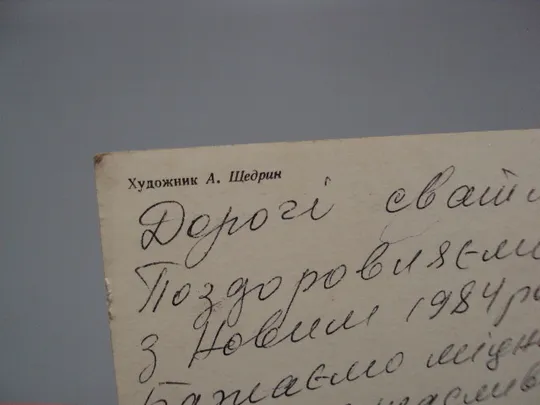 Художник А. Щедрин
Дорогі свати
Поздоровляємо
з Новим 1984 ро
Бажаємо міцн
щаслив